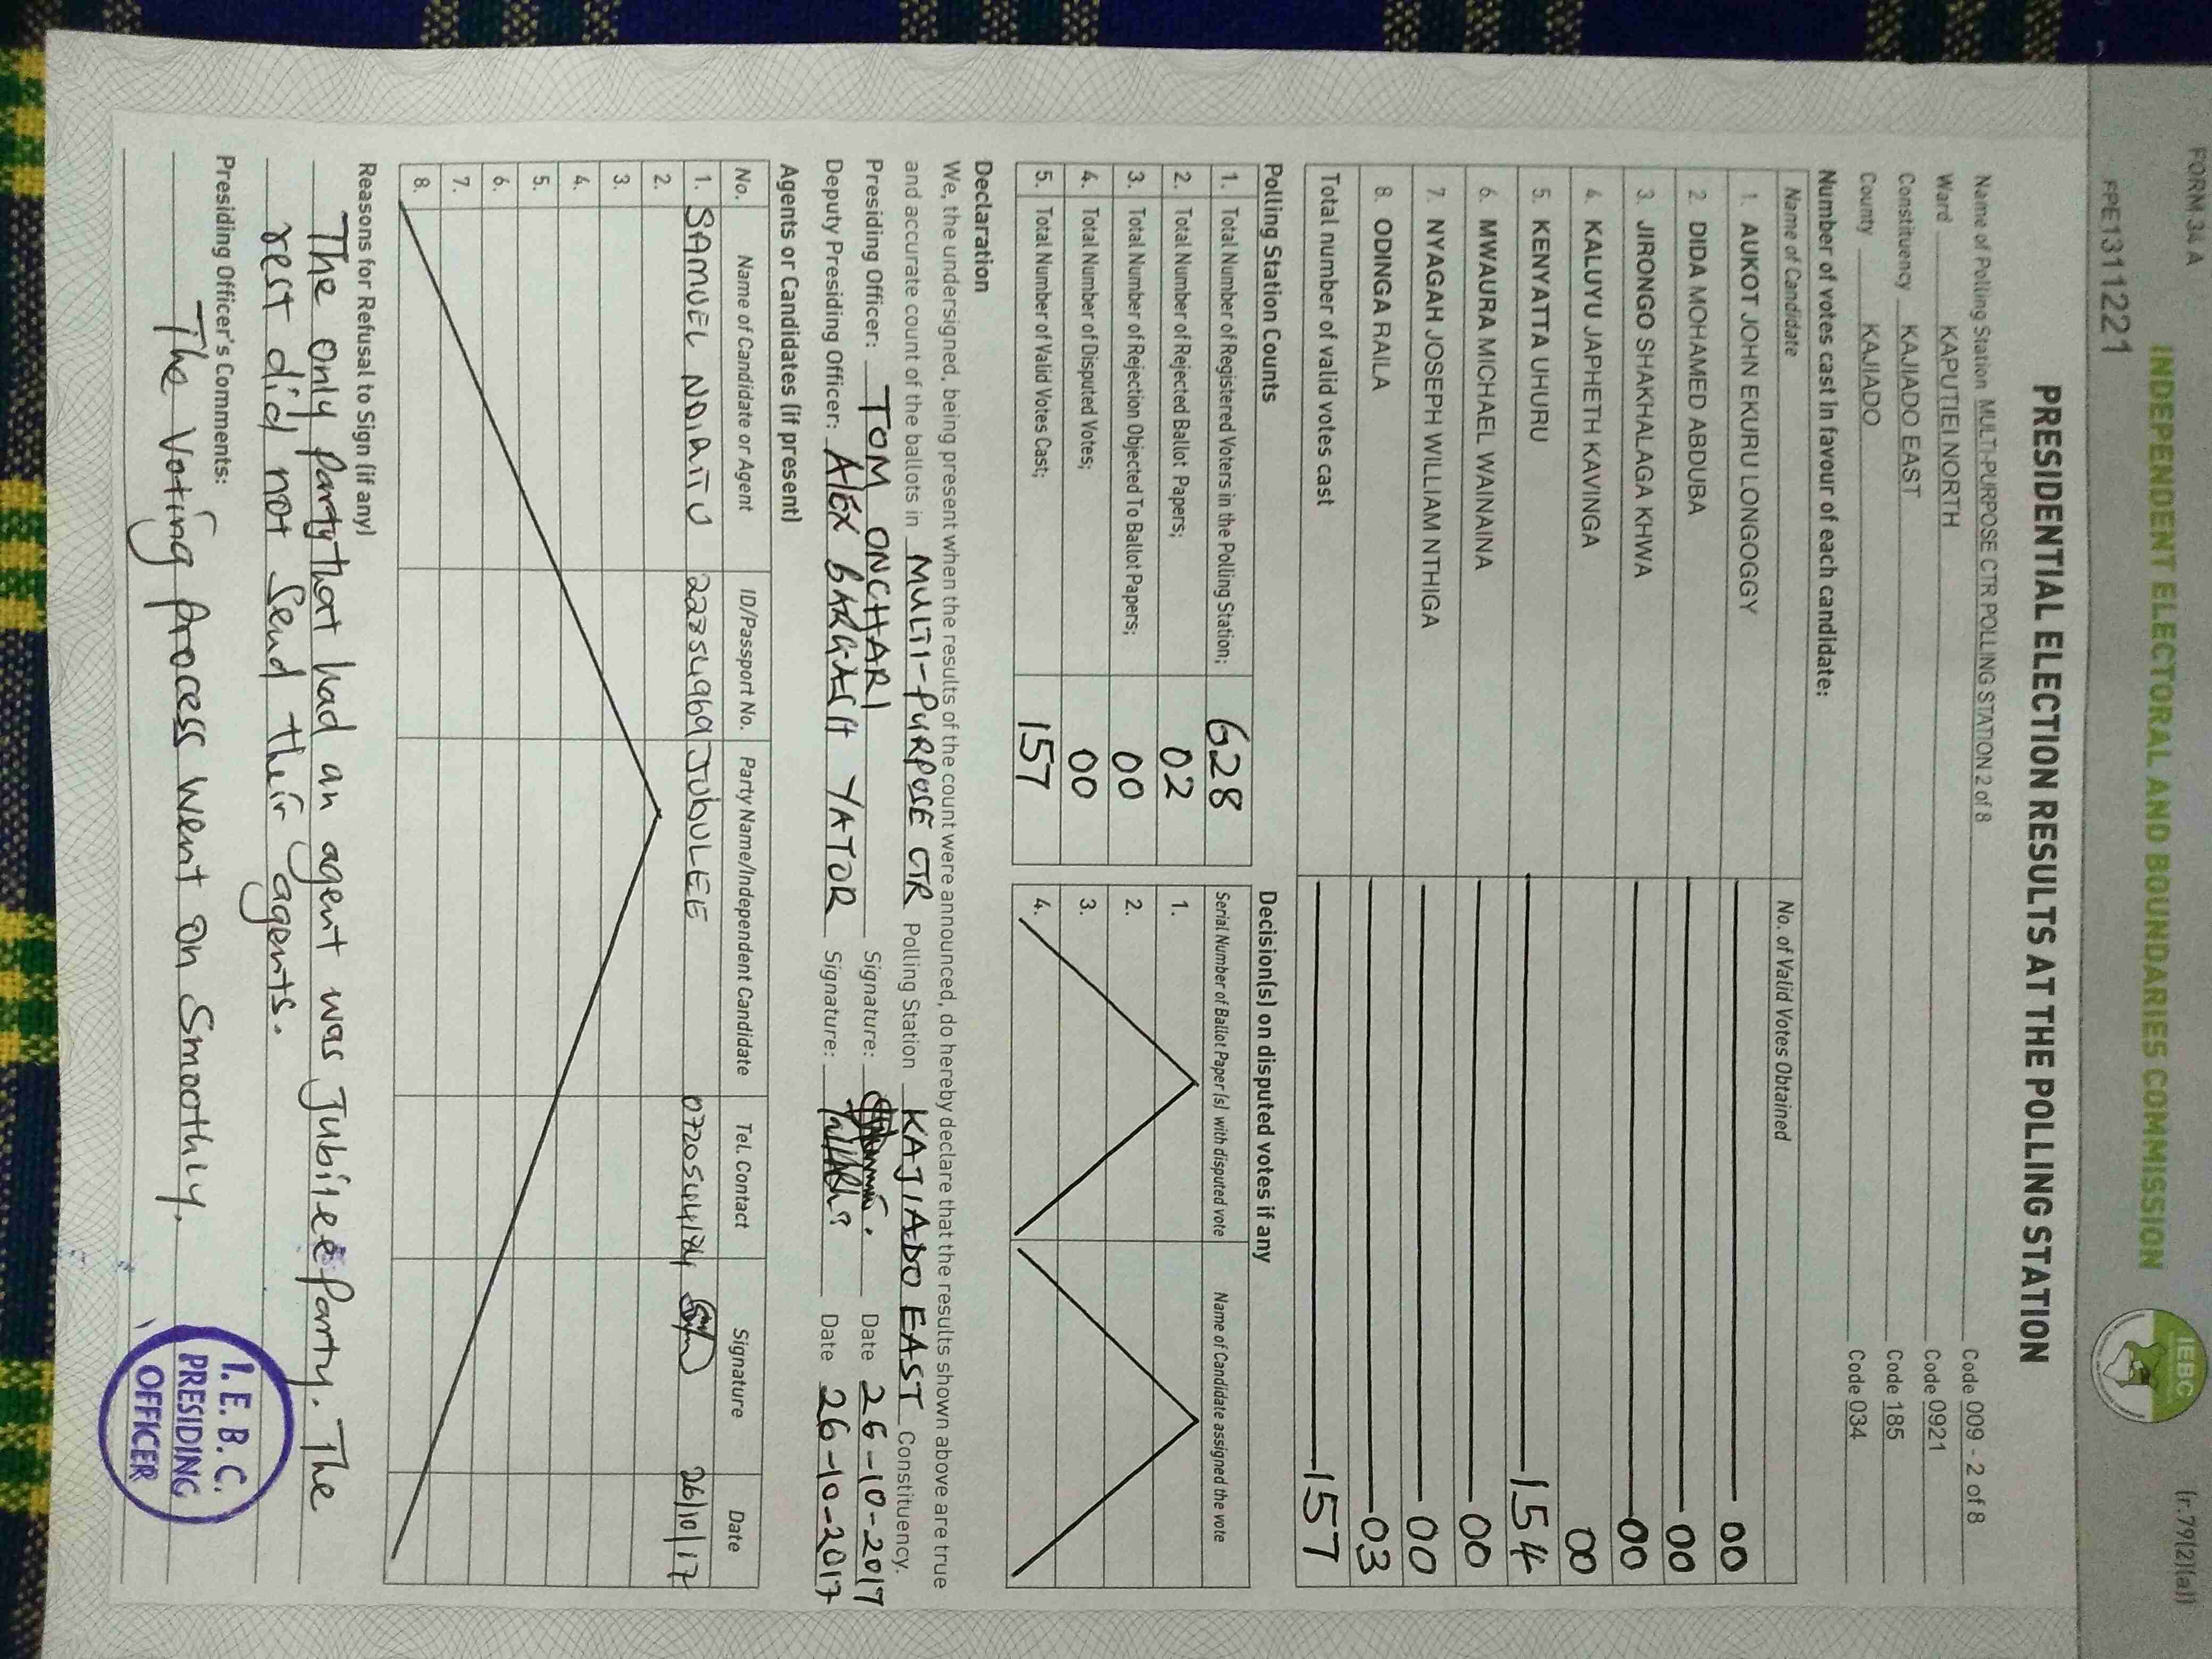 FORM 34 A
(r.79(2)(a))
INDEPENDENT ELECTORAL AND BOUNDARIES COMMISSION
IEBC
FPE1311221
PRESIDENTIAL ELECTION RESULTS AT THE POLLING STATION
Name of Polling Station MULTI-PURPOSE CTR POLLING STATION 2 of 8 Code 009 - 2 of 8
Ward KAPUTIEI NORTH Code 0921
Constituency KAJIADO EAST Code 185
County KAJIADO Code 034
Number of votes cast in favour of each candidate:
Name of Candidate No. of Valid Votes Obtained
1. AUKOT JOHN EKURU LONGOGGY 00
2. DIDA MOHAMED ABDUBA 00
3. JIRONGO SHAKHALAGA KHWA 00
4. KALUYU JAPHETH KAVINGA 00
5. KENYATTA UHURU 154
6. MWAURA MICHAEL WAINAINA 00
7. NYAGAH JOSEPH WILLIAM NTHIGA 00
8. ODINGA RAILA 03
Total number of valid votes cast 157
Polling Station Counts
1. Total Number of Registered Voters in the Polling Station; 628
2. Total Number of Rejected Ballot Papers; 02
3. Total Number of Rejection Objected To Ballot Papers; 00
4. Total Number of Disputed Votes; 00
5. Total Number of Valid Votes Cast; 157
Decision(s) on disputed votes if any
Serial Number of Ballot Paper (s) with disputed vote Name of Candidate assigned the vote
1.
2.
3.
4.
Declaration
We, the undersigned, being present when the results of the count were announced, do hereby declare that the results shown above are true
and accurate count of the ballots in MULTI-PURPOSE CTR Polling Station KAJIADO EAST Constituency.
Presiding Officer: TOM ONCHARI Signature: Date 26-10-2017
Deputy Presiding Officer: ALEX YATOR Signature: Date 26-10-2017
Agents or Candidates (if present)
No. Name of Candidate or Agent ID/Passport No. Party Name/Independent Candidate Tel. Contact Signature Date
1. SAMUEL NDIRITU 22354969 JUBULEE 26/10/17
2.
3.
4.
5.
6.
7.
8.
Reasons for Refusal to Sign (if any)
The only party that had an agent was Jubilee party. The
rest did not send their agents.
Presiding Officer's Comments:
The Voting process went on Smoothly.
I.E.B.C.
PRESIDING
OFFICER